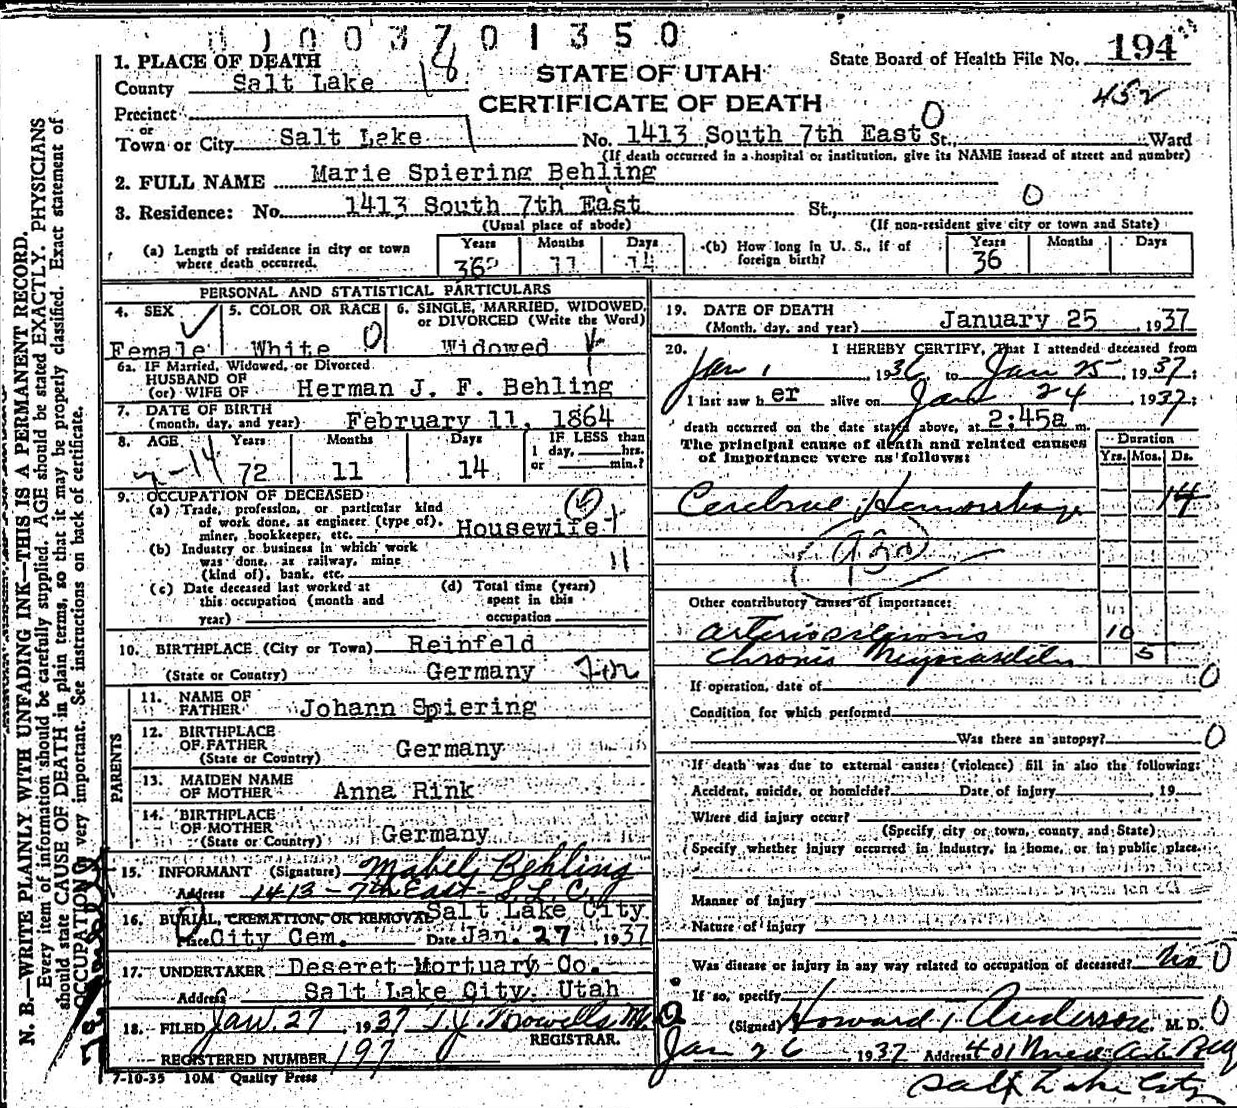 0 1 0 0 3 7 0 1 3 5 0
State Board of Health File No. 194
STATE OF UTAH
CERTIFICATE OF DEATH
452
1. PLACE OF DEATH
County Salt Lake 18
Precinct
or
Town or City Salt Lake 1 No. 1413 South 7th East St., 0 Ward
(If death occurred in a hospital or institution, give its NAME instead of street and number)
2. FULL NAME Marie Spiering Behling
3. Residence: No. 1413 South 7th East St., 0
(Usual place of abode) (If non-resident give city or town and State)
(a) Length of residence in city or town where death occurred. Years 36 Months 11 Days 14
(b) How long in U. S., if of foreign birth? Years 36 Months Days
PERSONAL AND STATISTICAL PARTICULARS
4. SEX Female
5. COLOR OR RACE White 0
6. SINGLE, MARRIED, WIDOWED, or DIVORCED (Write the Word) Widowed
6a. IF Married, Widowed, or Divorced
HUSBAND OF
(or) WIFE OF Herman J. F. Behling
7. DATE OF BIRTH
(month, day, and year) February 11, 1864
8. AGE Years 72 Months 11 Days 14
IF LESS than 1 day, hrs. or min.?
9. OCCUPATION OF DECEASED
(a) Trade, profession, or particular kind of work done, as engineer (type of), miner, bookkeeper, etc. Housewife
(b) Industry or business in which work was done, as railway, mine (kind of), bank, etc. 11
(c) Date deceased last worked at this occupation (month and year)
(d) Total time (years) spent in this occupation
10. BIRTHPLACE (City or Town) Reinfeld
(State or Country) Germany
PARENTS
11. NAME OF FATHER Johann Spiering
12. BIRTHPLACE OF FATHER
(State or Country) Germany
13. MAIDEN NAME OF MOTHER Anna Rink
14. BIRTHPLACE OF MOTHER
(State or Country) Germany
15. INFORMANT (Signature) Mabel Behling
Address 1413 - 7th East - S. L. C.
16. BURIAL, CREMATION, OR REMOVAL Salt Lake City
Place City Cem. Date Jan. 27, 1937
17. UNDERTAKER Deseret Mortuary Co.
Address Salt Lake City, Utah
18. FILED Jan. 27, 1937 T. J. Howells M.D.
REGISTRAR.
REGISTERED NUMBER 197
7-10-35 10M Quality Press
19. DATE OF DEATH
(Month, day, and year) January 25, 1937
20. I HEREBY CERTIFY, That I attended deceased from
Jan 1, 1936, to Jan 25, 1937;
I last saw h er alive on Jan 24, 1937;
death occurred on the date stated above, at 2:45a m.
The principal cause of death and related causes of importance were as follows:
Duration
Yrs. Mos. Ds.
Cerebral Hemorrhage 14
Other contributory causes of importance:
Arteriosclerosis 10
Chronic Myocarditis 5
If operation, date of 0
Condition for which performed
Was there an autopsy? 0
If death was due to external causes (violence) fill in also the following:
Accident, suicide, or homicide? Date of injury , 19
Where did injury occur?
(Specify city or town, county and State)
Specify whether injury occurred in industry, in home, or in public place.
Manner of injury
Nature of injury
Was disease or injury in any way related to occupation of deceased? No 0
If so, specify
(Signed) Howard Anderson M. D. 0
Jan 26 1937 Address 401 Med Arts Bldg
Salt Lake City
N. B.—WRITE PLAINLY WITH UNFADING INK—THIS IS A PERMANENT RECORD.
Every item of information should be carefully supplied. AGE should be stated EXACTLY. PHYSICIANS
should state CAUSE OF DEATH in plain terms, so that it may be properly classified. Exact statement of
OCCUPATION very important. See instructions on back of certificate.